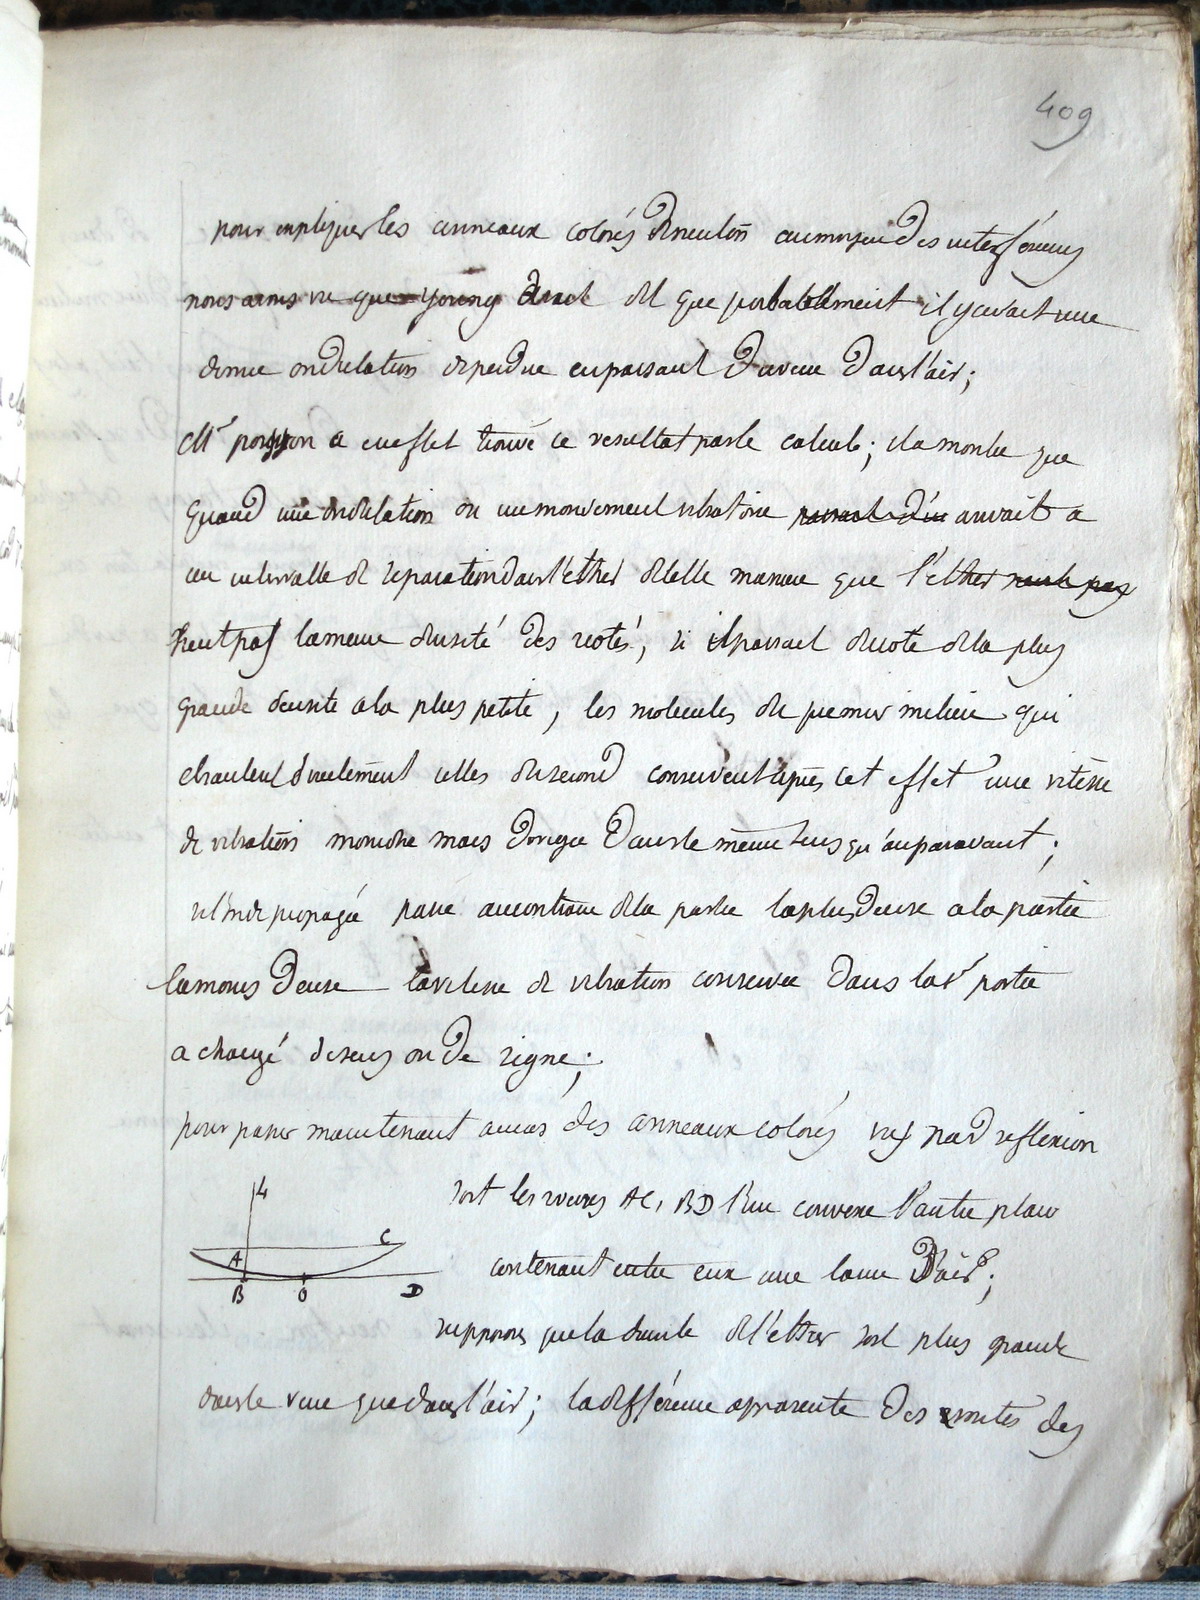 409
pour expliquer les anneaux colorés de neuton au moyen des interférences
nous avons vu que young avait dit que probablement il y avait une
demie ondulation de perdue en passant du verre dans l'air;
Mr poisson a en effet trouvé ce resultat par le calcul; il a montré que
quand une ondulation ou un mouvement vibratoire arrivait a
un intervalle de separation dans l'ether de telle maniere que l'ether
n'eut pas la meme densité des cotés, si il passait du coté de la plus
grande densité a la plus petite, les molecules du premier milieu qui
ebranlent seulement celles du second conservent après cet effet une vitesse
de vibration moindre mais dirigée dans le même sens qu'auparavant;
si l'onde propagée passe au contraire de la partie la plus dense a la partie
la moins dense la vitesse de vibration conservée dans la 1r partie
a changé de sens ou de signe;
pour passer maintenant au cas des anneaux colorés vus par reflexion
soit les verres AC, BD l'un convexe l'autre plan
contenant entre eux une lame d'air;
supposons que la densité de l'ether soit plus grande
dans le verre que dans l'air; la différence apparente des routes des
L
A C
B O D